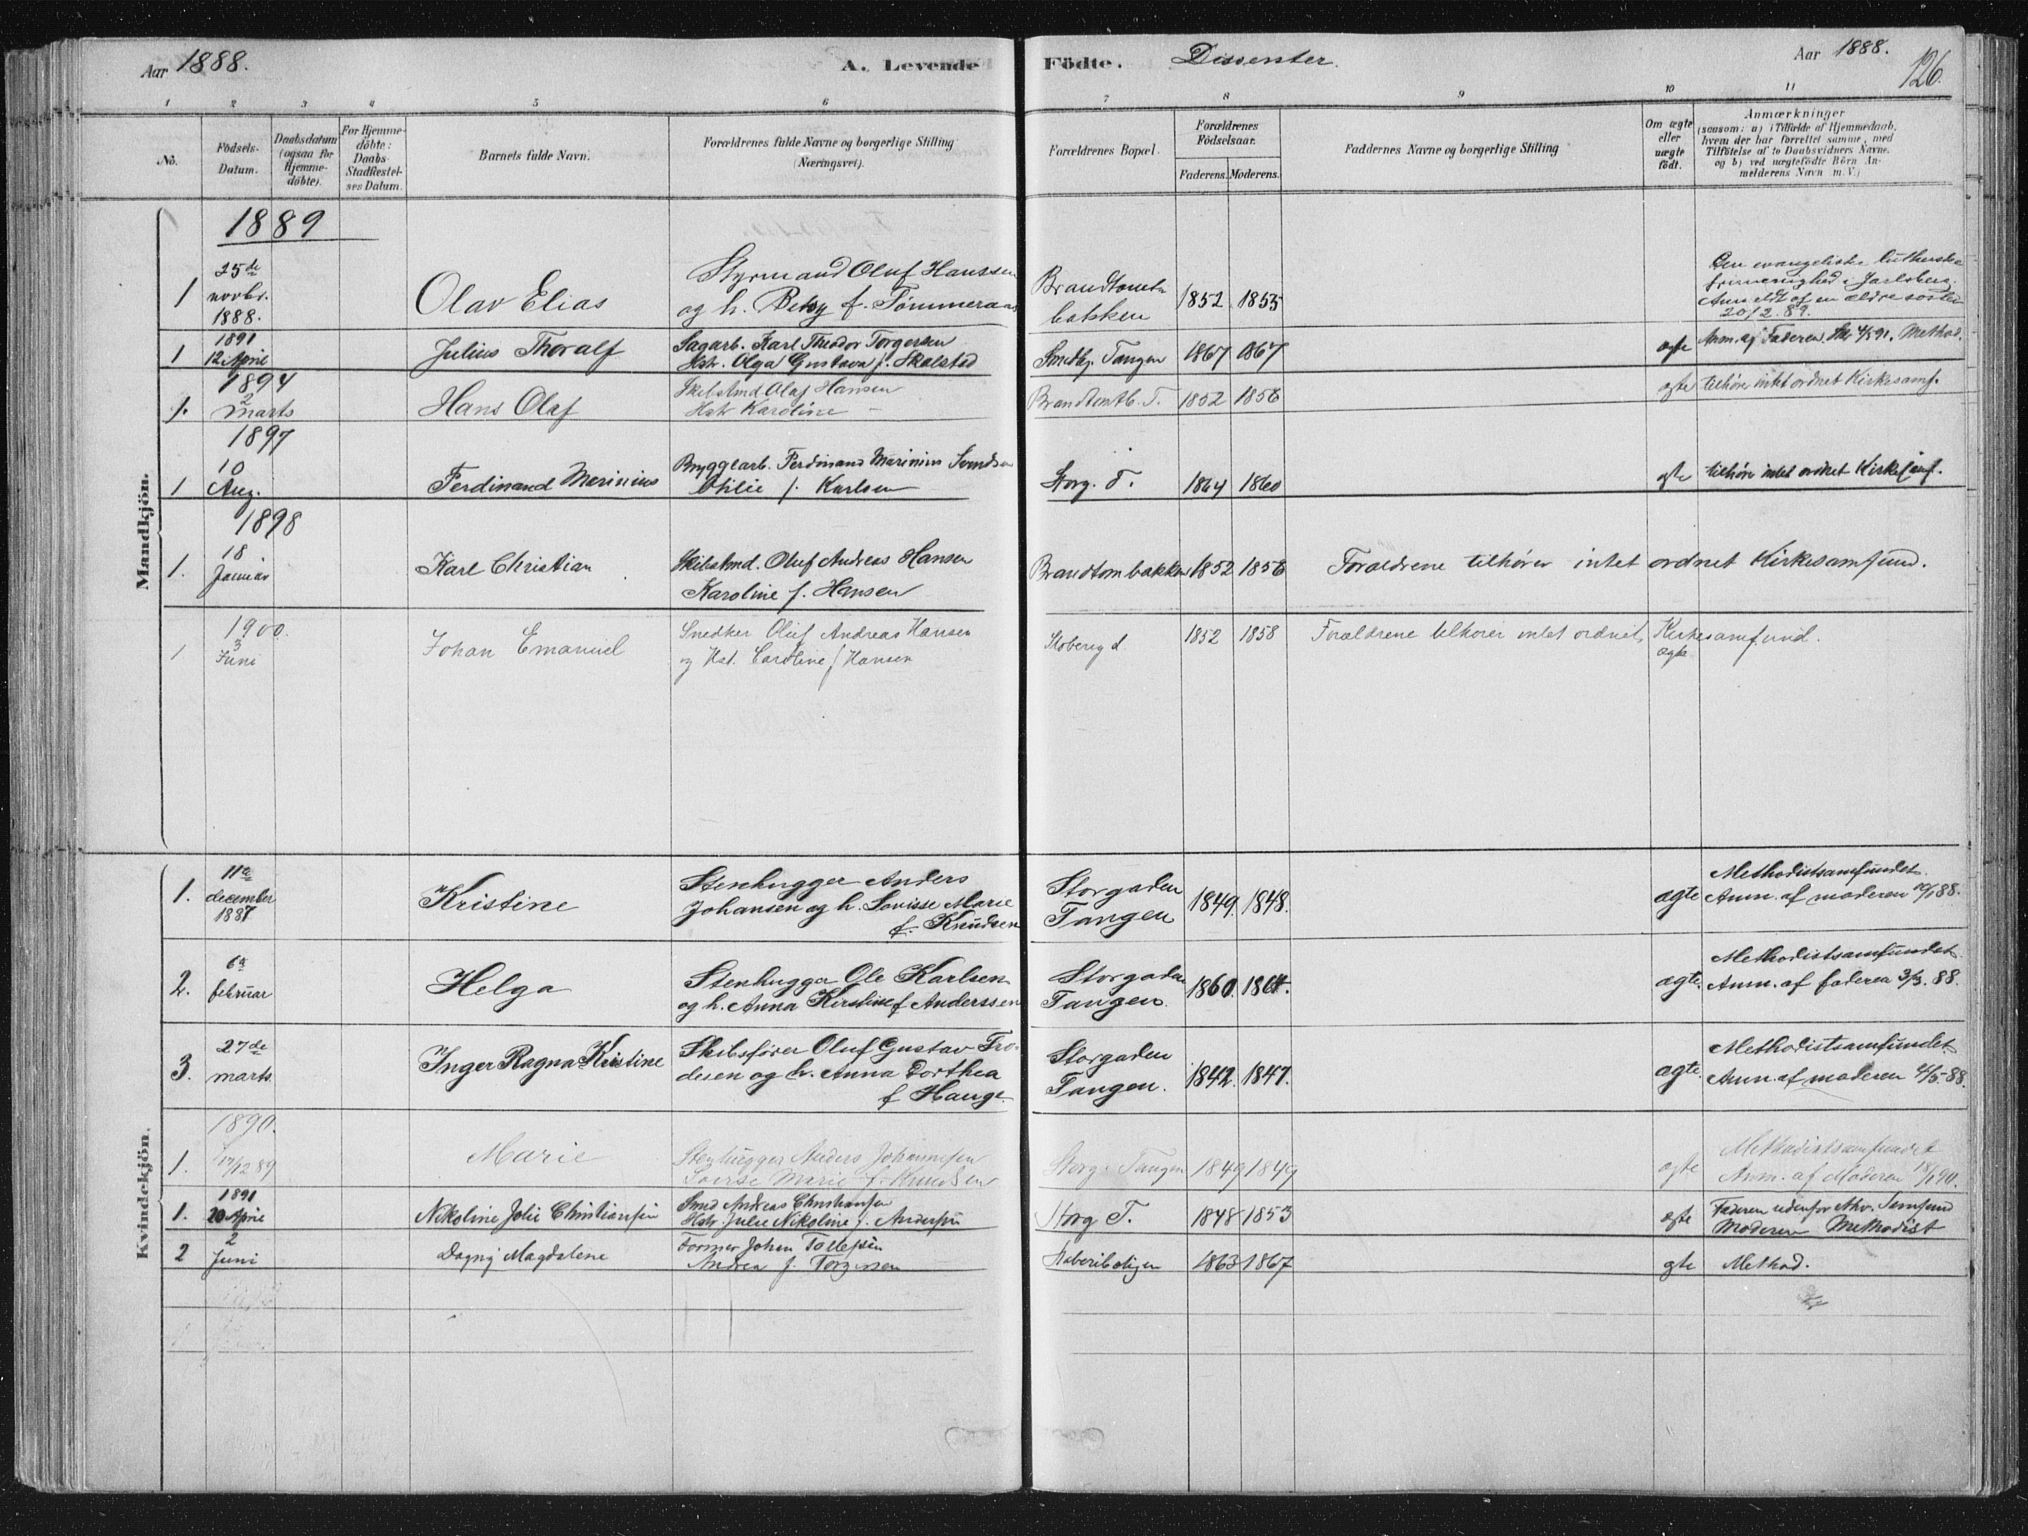 Aar 1888.
A. Levende Födte. Dissenter.
Aar 1888.
126.
1 2 3 4 5 6 7 8 9 10 11
No.
Födsels-Datum.
Daabsdatum (ogsaa for Hjemmedöbte).
For Hjemmedöbte: Daabs-Stadfæstelses Datum.
Barnets fulde Navn.
Forældrenes fulde Navne og borgerlige Stilling (Næringsvei).
Forældrenes Bopæl.
Forældrenes Födselsaar.
Faderens. Moderens.
Faddernes Navne og borgerlige Stilling
Om ægte eller uægte født.
Anmærkninger
(saasom: a) i Tilfælde af Hjemmedaab, hvem der har forrettet samme, med Tilföielse af to Daabsvidners Navne. og b) ved uægtefödte Börn Anmelderens Navn m. V.)
Mandkjön.
1889
1 25de novbr. 1888. Olav Elias Styrmand Oluf Hanssen og h. Betsy f. Tømmeraas 1852 1855 Den evangeliske lutherske frimenighed i Jarlsberg. Anmeldt af en ældre søster 20/2. 89.
1891
1 12 April Julius Thoralf Sagarb. Karl Theodor Torgersen Hstr. Olga Gustava f. Skolstad Smedbg. Tangen 1867 1867 ægte Anm. af Faderen Method.
1894
1. 2 Marts Hans Olaf Skibstmd Olaf Hansen Hstr Karoline – 1852 1856 ægte tilhører intet ordnet Kirkesamf.
1897
1 10 Aug. Ferdinand Marinius Bryggearb. Ferdinand Marinius Svendsen Otilie f. Karlsen Storg. T. 1864 1860 ægte tilhører intet ordnet Kirkesamf.
1898
1. 18 Januar Karl Christian Skibstmd. Oluf Andreas Hansen Karoline f. Hansen Brandtombakken 1852 1856 Forældrene tilhører intet ordnet Kirkesamfund.
1900.
1 3 Juni Johan Emanuel Snedker Oluf Andreas Hansen og Hst. Caroline f Hansen 1852 1858 Forældrene tilhører intet ordnet Kirkesamfund. ægte
Kvindekjön.
1. 11te december 1887 Kristine Stenhugger Anders Johansen og h. Lovisse Marie f. Knudsen Storgaden Tangen 1849. 1848. ægte Methodistsamfundet. Anm. af moderen
2. 6te februar Helga Stenhugger Ole Karlsen og h. Anna Kirstine f Anderssen Storgaden Tangen. 1860. ægte. Methodistsamfundet. Anm. af faderen 3/3. 88.
3. 27de marts Inger Ragna Kristine Skibsfører Oluf Gustav Frodesen og h. Anna Dorthea f Hauge Storgaden Tangen. 1842. 1847. ægte. Methodistsamfundet Anm. af moderen
1890.
1. 17/12 89 Marie Stenhugger Anders Johannesen Lovise Marie f. Knudsen Storg. Tangen 1849 1849 ægte Methodistsamfundet Anm. af Moderen
1891
1. 20 April Nikoline Julie Christiansen Smed Andreas Christiansen Hstr. Julie Nikoline f. Andersen Storg T. 1848 1853 ægte Faderen udenfor Samfund Moderen Methodist
2 2 Juni Dagny Magdalene Former Johan Tollefsen Andrea f. Torgersen 1863 1867 ægte Method.